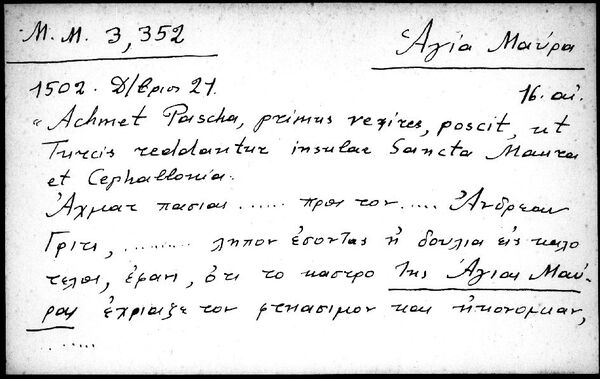 M. M. 3,352
Ἁγία Μαύρα
1502. Δ/βριος 21.
16. αἰ.
"Achmet Pascha, primus vezires, poscit, ut
Turcis reddantur insulae Sancta Maura
et Cephallonia.
Ἀχματ πασιας ...... προς τον ..... Ἀνδρεαν
Γριτι, ......... ληπον ἐσοντας ἡ δουλια εἰς καλο
τελος, ἐφανι, ὁτι το καστρο της Ἁγιας Μαύ-
ρας ἐχριαζε τον φτηασιμον και ἠκονομιαν,
......